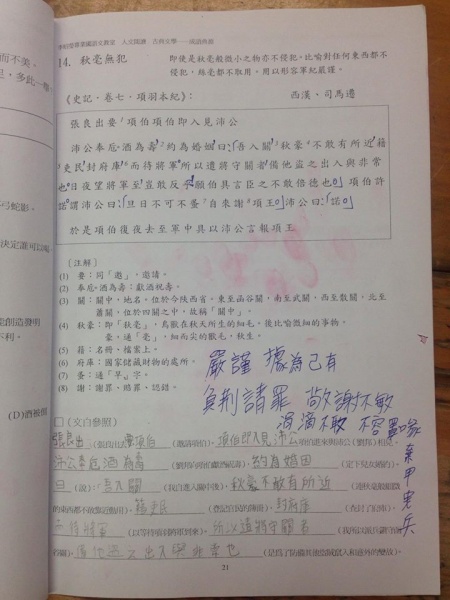 李昶瑩專業國語文教室　人文閱讀　古典文學——成語典籍
14. 秋毫無犯　即使是秋毫般微小之物亦不侵犯。比喻對任何東西都不
侵犯，絲毫都不取用。用以形容軍紀嚴謹。
《史記．卷七．項羽本紀》：　西漢、司馬遷
張良出要項伯項伯即入見沛公
沛公奉卮酒為壽約為婚姻曰吾入關秋豪不敢有所近籍
吏民封府庫而待將軍所以遣將守關者備他盜之出入與非常
也日夜望將軍至豈敢反乎願伯具言臣之不敢倍德也項伯許
諾謂沛公曰旦日不可不蚤自來謝項王沛公曰諾
於是項伯復夜去至軍中具以沛公言報項王
〔注解〕
(1) 要：同「邀」，邀請。
(2) 奉卮酒為壽：獻酒祝壽。
(3) 關：關中，地名，位於今陝西省，東至函谷關，南至武關，西至散關，北至
蕭關，位於四關之中，故稱「關中」。
(4) 秋豪：即「秋毫」，鳥獸在秋天所生的細毛，後比喻微細的事物。
豪，通「毫」，細而尖的獸毛，秋生。
(5) 籍：名冊、檔案上。
(6) 府庫：國家儲藏財物的處所。
(7) 蚤：通「早」字。
(8) 謝：謝罪、賠罪、認錯。
嚴謹　據為己有
負荊請罪　敬謝不敏
涓滴不敢
棄甲曳兵
□（文白參照）
張良出　要項伯（邀請項伯），項伯即入見沛公
沛公奉卮酒為壽　約為婚姻（定下兒女婚約），
曰（說）：吾入關（我自進入關中後），秋豪不敢有所近
籍吏民　封府庫
而待將軍（以等待項將軍到來）。所以遣將守關者
備他盜之出入與非常也（是為了防備其他盜賊竄入和意外的變故）。
21
而不美。
，多此一舉
弓蛇影。
決定誰可以喝
能創造發明
不利。
(D)酒被僧